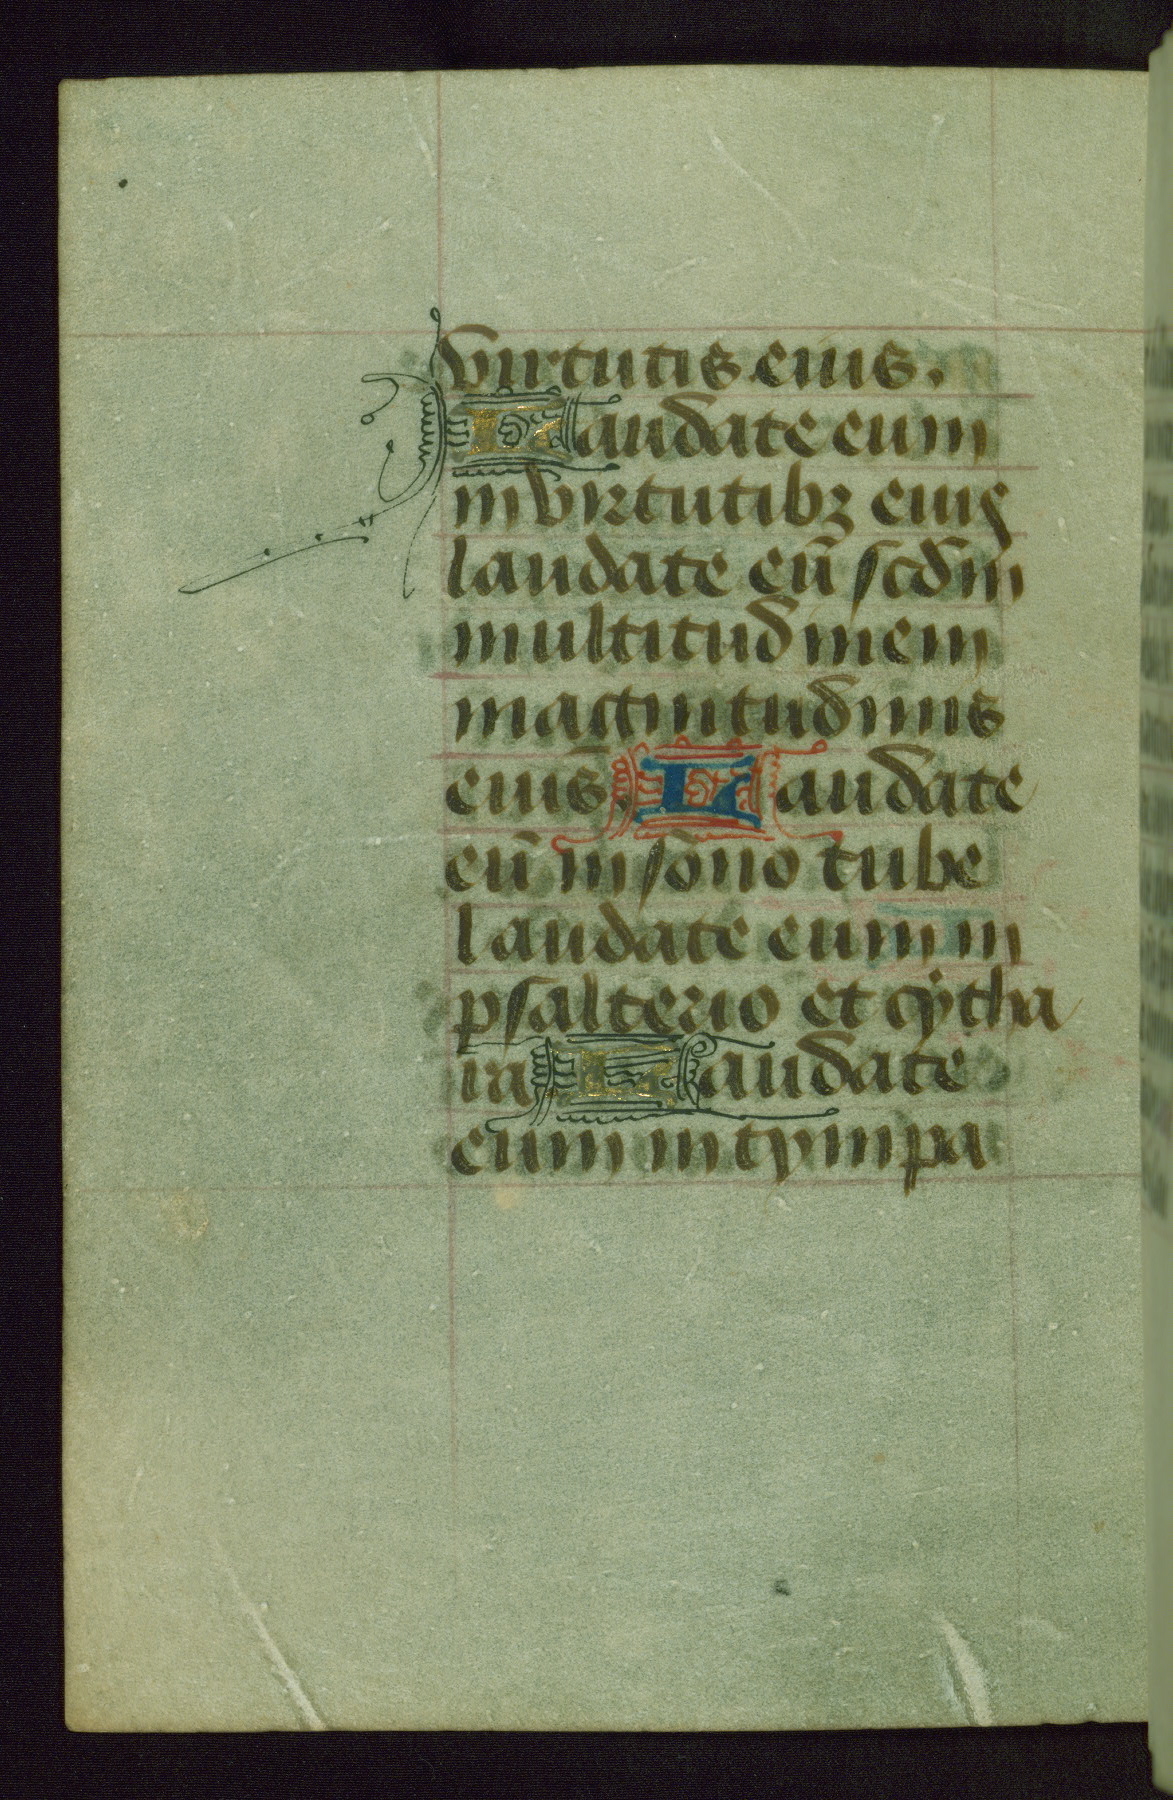 virtutis eius.
Laudate eum
in virtutibꝫ eius
laudate eū scd̄m
multitudinem
magnitudinis
eius. Laudate
eū in sono tube
laudate eum in
psalterio et cẏtha
ra Laudate
eum in tympa